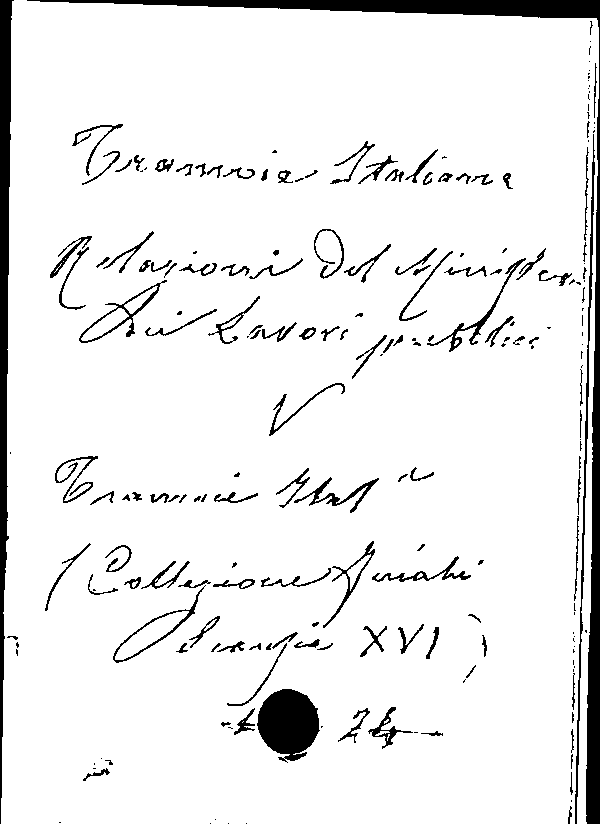 Tramvie Italiane
Relazioni del Minister
dei Lavori pubblici
V
Tramvie Ital ᵉ
(Collezione
Scansie XVI)
24